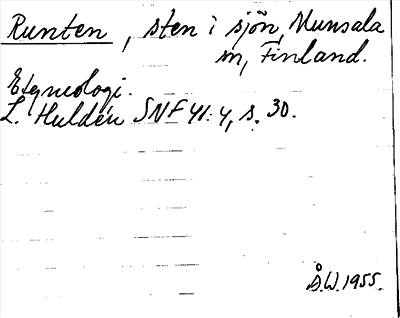 Runten, sten i sjön, Munsala
sn, Finland.
Etymologi.
L. Huldén SNF 41:4, s. 30.
Å.W. 1955.